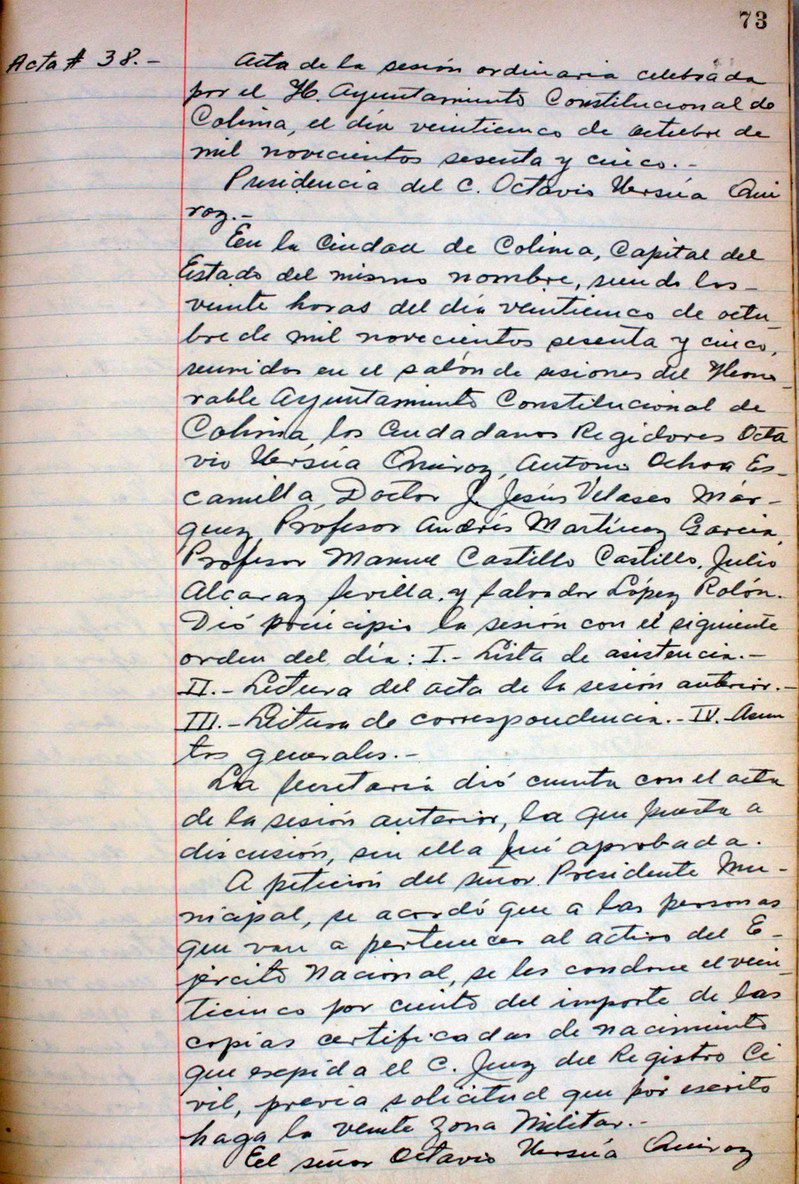 73
Acta # 38.-
Acta de la sesión ordinaria celebrada
por el H. Ayuntamiento Constitucional de
Colima, el día veinticinco de octubre de
mil novecientos sesenta y cinco.-
Presidencia del C. Octavio Ursúa Qui
roz.-
En la Ciudad de Colima, Capital del
Estado del mismo nombre, siendo las
veinte horas del día veinticinco de octu
bre de mil novecientos sesenta y cinco,
reunidos en el salón de sesiones del Hono-
rable Ayuntamiento Constitucional de
Colima, los Ciudadanos Regidores Octa
vio Ursúa Quiroz, Antonio Ochoa Es-
camilla, Doctor J. Jesús Velasco Már-
quez, Profesor Andrés Martínez García,
Profesor Manuel Castillo Castillo, Julio
Alcaraz Sevilla, y Salvador López Rolón.
Dió principio la sesión con el siguiente
orden del día: I.- Lista de asistencia.-
II.- Lectura del acta de la sesión anterior.-
III.- Lectura de correspondencia.- IV. Asun
tos generales.-
La Secretaría dió cuenta con el acta
de la sesión anterior, la que puesta a
discusión, sin ella fué aprobada.
A petición del señor Presidente Mu-
nicipal, se acordó que a las personas
que van a pertenecer al activo del E-
jército Nacional, se les condone el vein-
ticinco por ciento del importe de las
copias certificadas de nacimiento
que expida el C. Juez del Registro Ci
vil, previa solicitud que por escrito
haga la veinte zona Militar.-
El señor Octavio Ursúa Quiroz